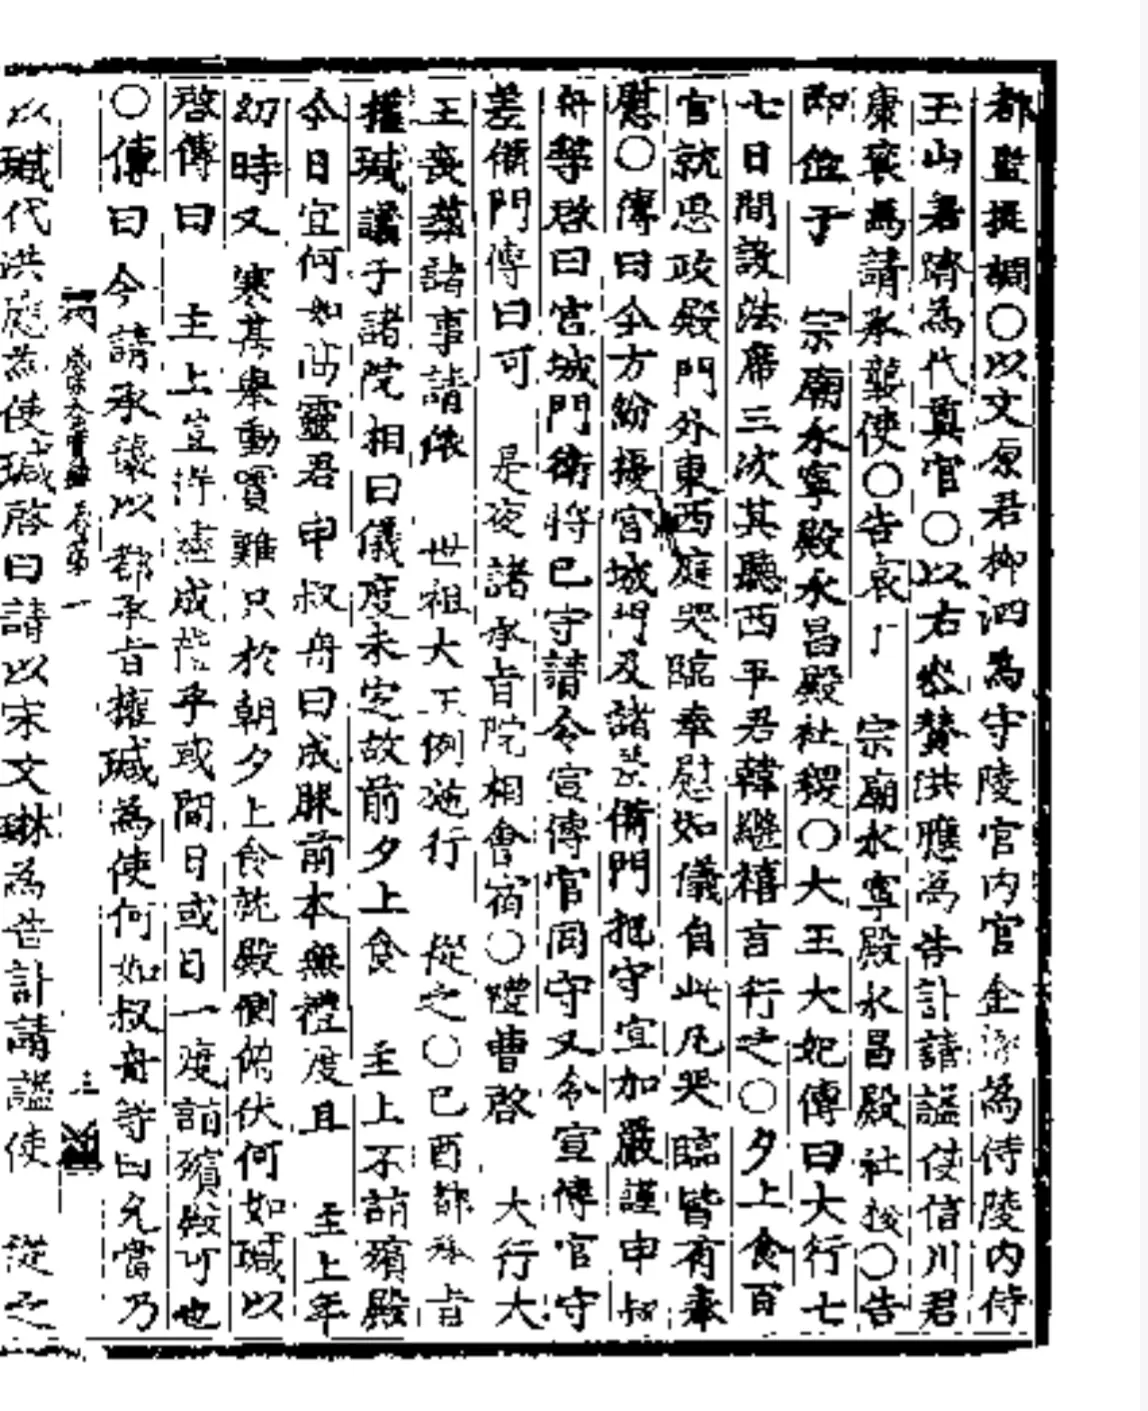 都監提調○以文原君柳泗爲守陵官內官金 爲侍陵內侍
玉山君躋爲代奠官○以右參贊洪應爲告訃請諡使信川君
康袞爲請承襲使○告哀于 宗廟永寧殿永昌殿社稷○告
即位于 宗廟永寧殿永昌殿社稷○大王大妃傳曰大行七
七日間設法席三次其聽西平君韓繼禧言行之○夕上食百
官就思政殿門外東西庭哭臨奉慰如儀自此凡哭臨皆有奉
慰○傳曰今方紛擾宮城門及諸 門把守宜加嚴謹申叔
舟等啓曰宮城門衛將已守請令宣傳官同守又令宣傳官守
差備門傳曰可 是夜諸承旨院相會宿○禮曹啓 大行大
王喪葬諸事請依 世祖大王例施行 從之○己酉都承旨
權瑊議于諸院相曰儀度未定故前夕上食 主上不詣殯殿
今日宜何如高靈君申叔舟曰成服前本無禮度且 主上年
幼時又 寒甚擧動實難只於朝夕上食詣殿側俯伏何如瑊以
啓傳曰 主上豈待遠成 乎或間日或日一度詣殯殿可也
○傳曰 今請承襲以都承旨權瑊爲使何如叔舟等曰允當乃
成宗大王實錄卷第一
以瑊代洪應爲使瑊啓曰請以宋文琳爲告訃請諡使 從之